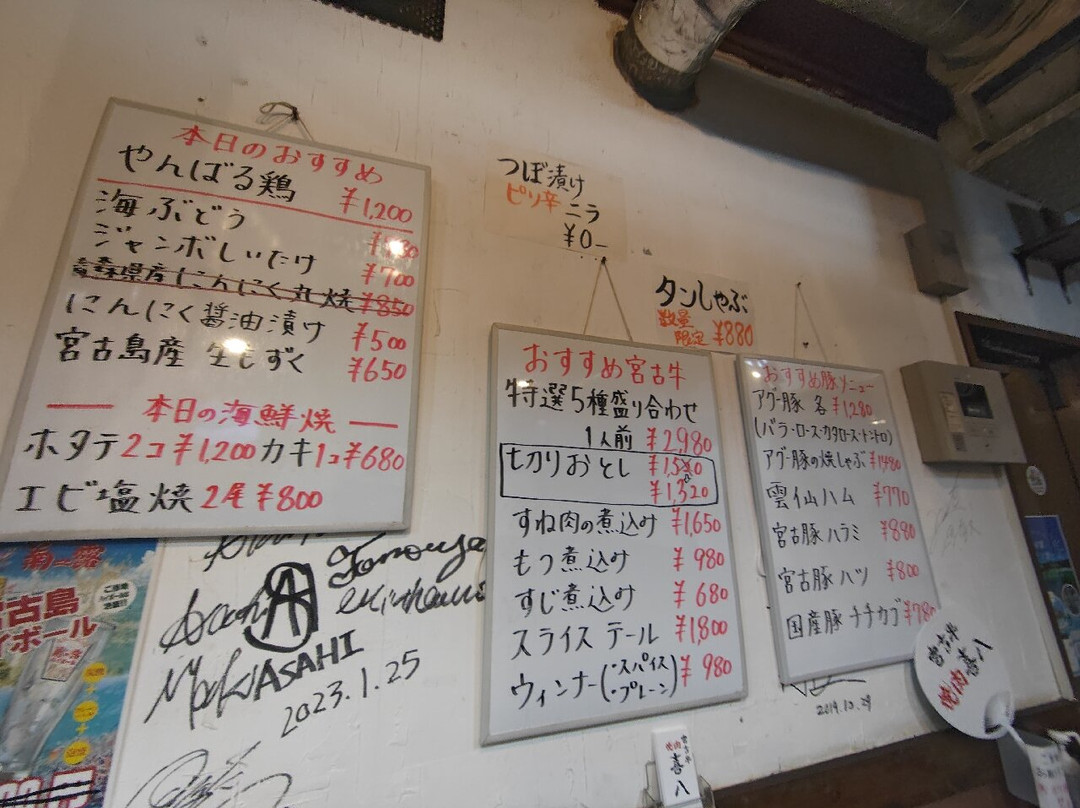 本日のおすすめ
やんばる鶏 ¥1,200
海ぶどう
ジャンボしいたけ ¥700
青森県産にんにく丸焼 ¥850
にんにく醤油漬け ¥500
宮古島産 生もずく ¥650
本日の海鮮焼
ホタテ2コ¥1,200 カキ1コ¥680
エビ塩焼 2尾¥800
つぼ漬け
ピリ辛 ニラ
¥0-
タンしゃぶ
数量
限定 ¥880
おすすめ宮古牛
特選5種盛り合わせ
1人前 ¥2,980
切りおとし
¥1,320
すね肉の煮込み ¥1,650
もつ煮込み ¥980
すじ煮込み ¥680
スライス テール ¥1,800
ウィンナー(・スパイス ・プレーン) ¥980
おすすめ豚メニュー
アグー豚 各 ¥1,280
(バラ・ロース・カタロース・トントロ)
アグー豚の焼しゃぶ ¥1,480
雲仙ハム ¥770
宮古豚ハラミ ¥880
宮古豚ハツ ¥800
国産豚 チチカブ ¥780
ASAHI
2023.1.25
2019.10.29
宮古島
イボール
宮古牛
焼肉 喜八
宮古牛
焼肉
喜八